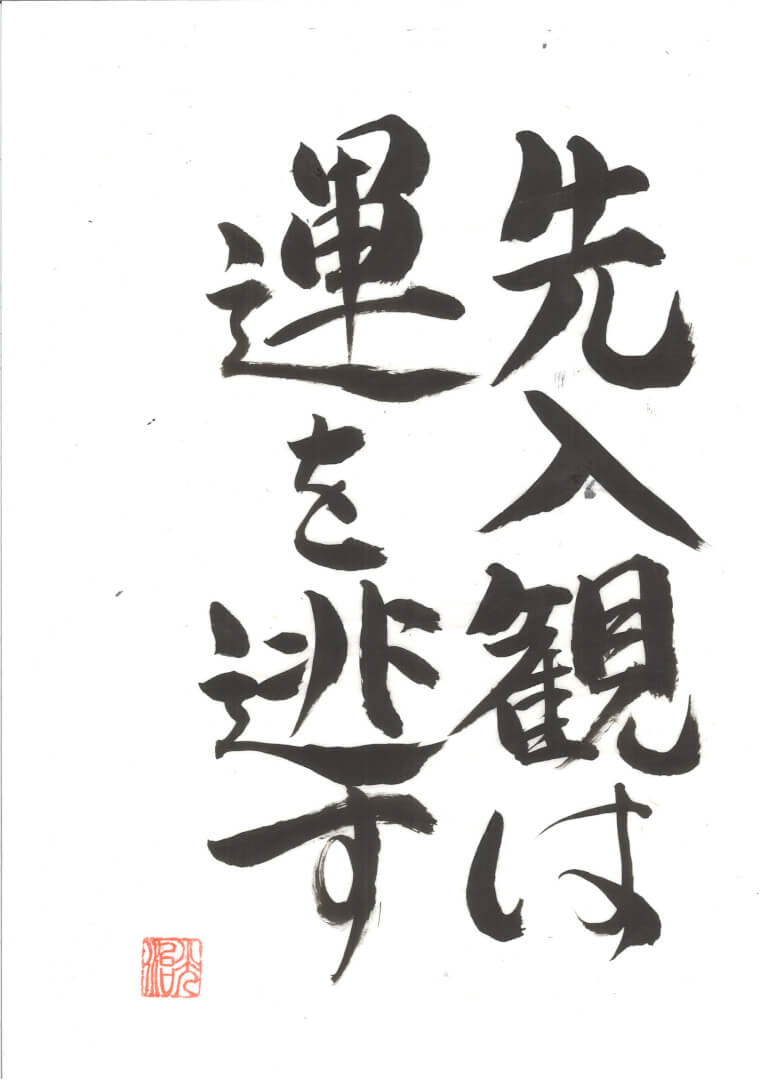 先入観は
運を逃す